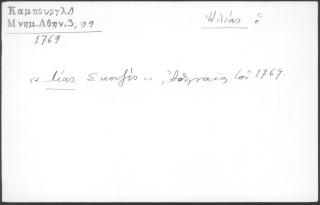 Καμπούργλ.Δ
Μνημ.Αθην.3, 99
1769
Ἠλίας ὁ
"Λίας Σκουζὲς", Ἀθηναῖος τοῦ 1769.